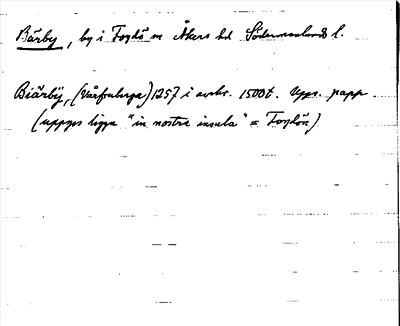 Bärby, by i Fogdö sn Åkers hd Södermanlands l.
Biärby, (Vårfruberga) 1257 i avskr. 1500t. Upps. papp
(uppges ligga "in nostra insula" = Fogdön)